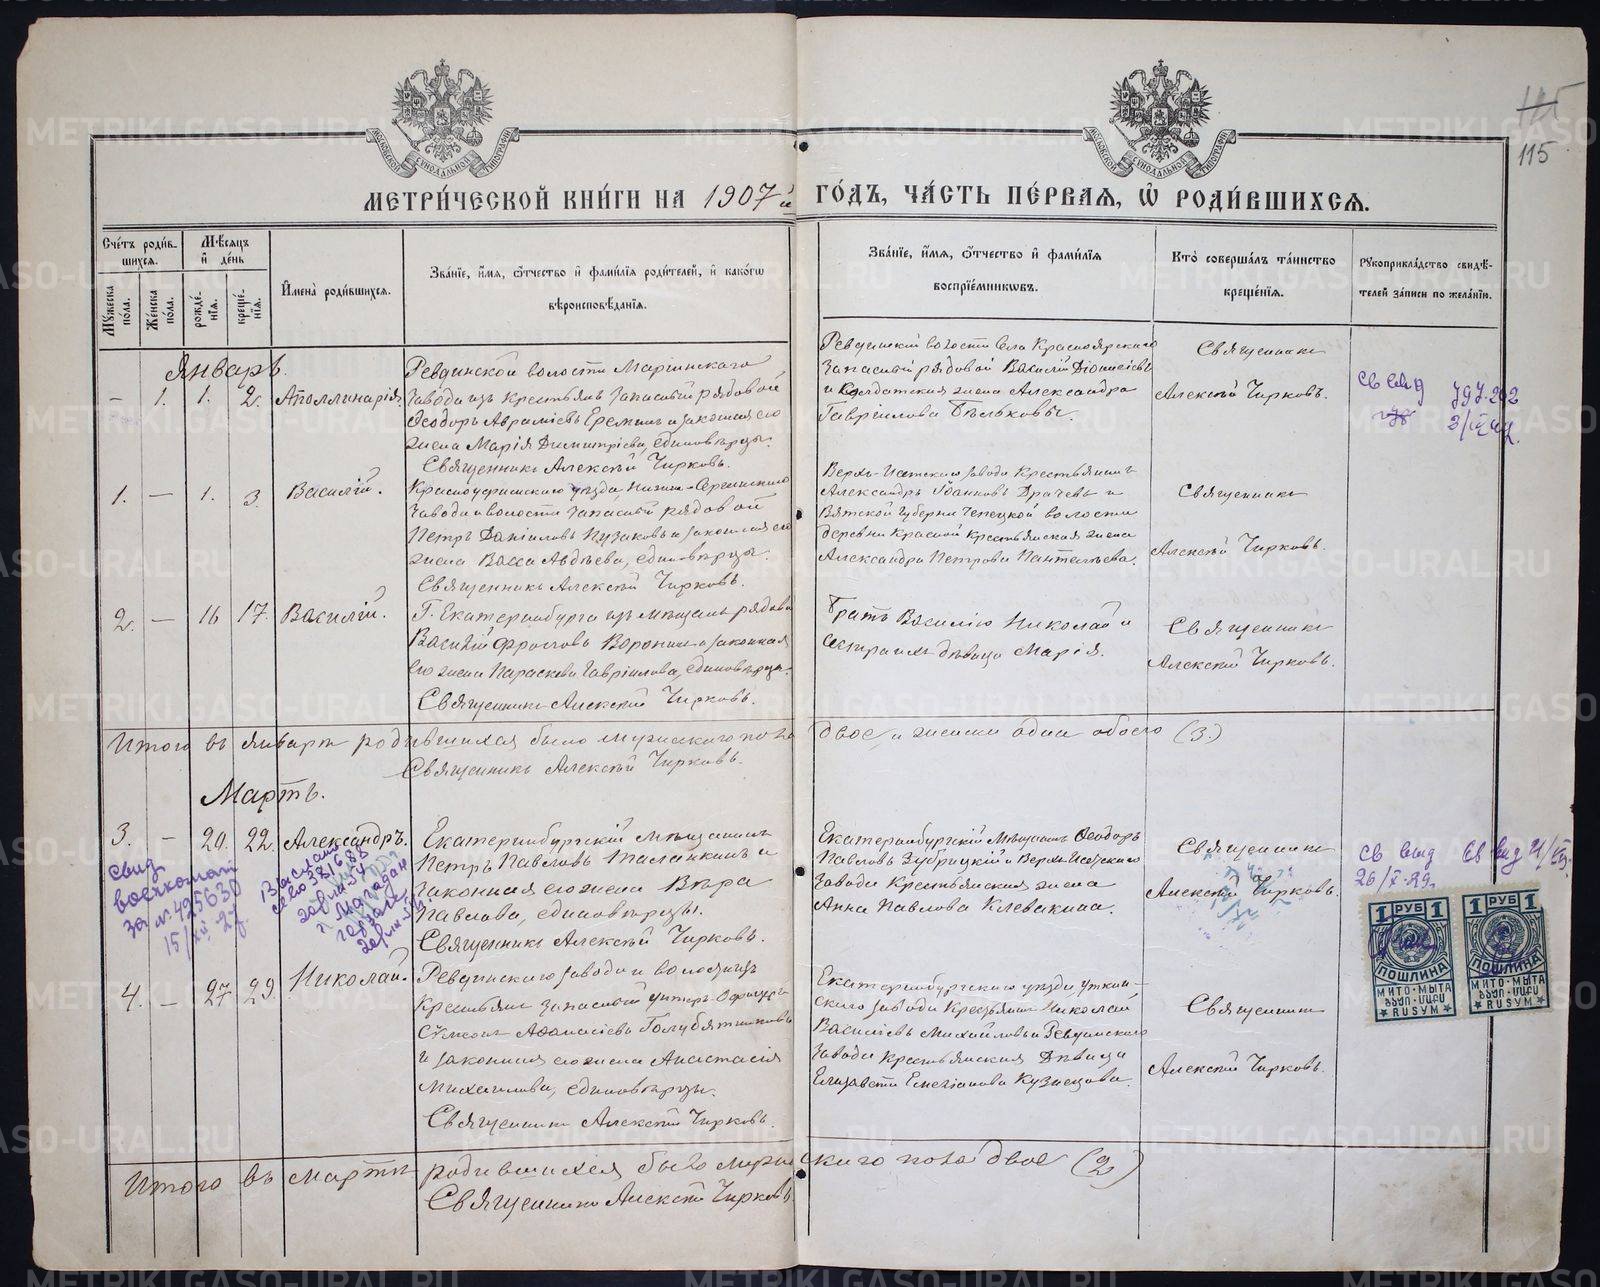 115
115
МЕТРИ́ЧЕСКОЙ КНИ́ГИ НА 1907 й ГО́ДЪ, ЧА́СТЬ ПЕ́РВАЯ, Ѡ РОДИ́ВШИХСЯ.
Сче́тъ роди́вшихся.
Му́жеска по́ла.
Же́нска по́ла.
Мѣ́сяцъ и де́нь
рожде́нїя.
креще́нїя.
Имена̀ роди́вшихся.
Зва́нїе, и́мя, ѻ́тчество и фами́лїя роди́телей, и како́гѡ
вѣроисповѣ́данїя.
Зва́нїе, и́мя, ѻ́тчество и фами́лїя
воспрїе́мникѡвъ.
Кто̀ соверша́лъ та́инство
креще́нїя.
Рꙋкоприкла́дство свидѣ́-
телей за́писи по жела́нїю.
Январь.
- 1. 1. 2. Аполлинарія.
Ревдинской волости Маріинскаго
завода изъ крестьянъ запасный рядовой
Ѳеодоръ Авраміевъ Ереминъ и законная его
жена Марія Димитріева, единовѣрцы.
Священникъ Алексѣй Чирковъ.
Ревдинской волости села Красноярскаго
запасный рядовой Василій Діонисіевъ
и солдатская жена Александра
Гаврилова Бѣльковы.
Священникъ
Алексѣй Чирковъ.
1. — 1. 3. Василій.
Красноуфимскаго уѣзда Нижне-Сергинскаго
завода и волости запасный рядовой
Петръ Даніиловъ Пузаковъ и законная его
жена Васса Авдѣева, единовѣрцы.
Священникъ Алексѣй Чирковъ.
Верхъ-Исетскаго завода крестьянинъ
Александръ Іоанновъ Драчевъ и
Вятской губерніи Чепецкой волости
деревни Красной крестьянская жена
Александра Петрова Пантелѣева.
Священникъ
Алексѣй Чирковъ.
2. — 16 17. Василій.
Г. Екатеринбурга изъ мѣщанъ рядовой
Василій Фроловъ Воронинъ и законная
его жена Параскева Гавріилова, единовѣрцы.
Священникъ Алексѣй Чирковъ.
Братъ Василію Николай и
сестра ихъ дѣвица Марія.
Священникъ
Алексѣй Чирковъ.
Итого въ январѣ родившихся было мужескаго пола двое и женска одна обоего (3.)
Священникъ Алексѣй Чирковъ.
Мартъ.
3. — 20. 22. Александръ.
Екатеринбургскій мѣщанинъ
Петръ Павловъ и
законная его жена Вѣра
Павлова, единовѣрцы.
Священникъ Алексѣй Чирковъ.
Екатеринбургскій мѣщанинъ Ѳеодоръ
Павловъ Зубрицкій и Верхъ-Исетскаго
завода крестьянская жена
Анна Павлова Клевакина.
Священникъ
Алексѣй Чирковъ.
свид
военкомат
за № 425630
15/XII 27
св выд
26/X-29.
св выд
1 РУБ 1
ПОШЛИНА
МИТО·МЫТА
RUSYM
1 РУБ 1
ПОШЛИНА
МИТО·МЫТА
RUSYM
4. — 27. 29. Николай.
Ревдинскаго завода и волости изъ
крестьянъ запасный унтеръ-офицеръ
Сѵмеонъ Аѳанасіевъ Голубятниковъ
и законная его жена Анастасія
Михайлова, единовѣрцы.
Священникъ Алексѣй Чирковъ.
Екатеринбургскаго уѣзда, Уткин-
скаго завода крестьянинъ Николай
Василіевъ Михайловъ и Ревдинскаго
завода крестьянская дѣвица
Елизавета Кузнецова.
Священникъ
Алексѣй Чирковъ.
Итого въ мартѣ родившихся было мужескаго пола двое (2)
Священникъ Алексѣй Чирковъ